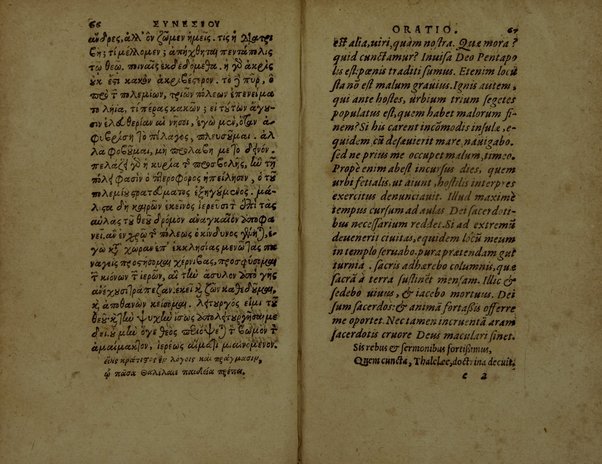 66 ΣΥΝΕΣΙΟΥ
ἄνδρες, ἀλλ' ὃν ζῶμεν ἡμεῖς. τίς ἡ διατρι
βή; τί μέλλομεν; ἀπήχθηται πεντάπολις
τῷ θεῷ. ποιναῖς ἐκδεδόμεθα. ἡ γὰρ ἀκρὶς
οὐκ ἔτι κακὸν ἀκριβέστερον. τὸ πῦρ, ὃ
πρὸ τῶν πολεμίων, τριῶν πόλεων ἐπενείμα
το λήϊα. τί πέρας κακῶν; εἰ τούτων ἄγευ
σοι ἐλεύθεραι αἱ νῆσοι, ἐγὼ μὲν, ὅταν ἀ
φυβρίσῃ τὸ πέλαγος, πλεύσομαι. ἀλ
λὰ φοβοῦμαι, μὴ προλάβῃ με τὸ δεινόν.
πελάζει γὰρ ἡ κυρία τῆς προσβολῆς, ἣν τῇ
πόλει φασὶν ὁ πυρφόρος ἠπείλησεν, ὁ τῶν
πολεμίων στρατεύματος ἐξηγούμενος. μά
λιστα δὴ καιρῶν ἐκεῖνος ἱερεῦσι τὸν ἐπὶ τὰς
αὐλὰς τοῦ θεοῦ δρόμον ἀναγκαῖον ἀποφα
νεῖ. ἂν ἐν χρῷ τῆς πόλεως ὁ κίνδυνος γένηται, ἐ
γὼ κατὰ χώραν ἐπ' ἐκκλησίας μενῶ. τὰς πα
ναγεῖς προστήσομαι χέρνιβας, προσφύσομαι
τῶν κιόνων τῶν ἱερῶν, αἳ τὴν ἄσυλον ἀπὸ γῆς
ἀνέχουσι τράπεζαν. ἐκεῖ καὶ ζῶν καθεδοῦμαι,
καὶ ἀποθανὼν κείσομαι. λειτουργός εἰμι τοῦ
θεοῦ. καὶ τὴν ψυχὴν ἴσως ἀπολειτουργῆσαί με
δεῖ. οὐ μὴν ὅγε θεὸς περιόψεται τὸν βωμὸν τὸν
ἀναίμακτον, ἱερέως αἵματι μιαινόμενον.
εἴης κράτιστος ἐν λόγοις καὶ πράγμασιν,
ᾧ πᾶσα Θαλελαῖε παιδεία πρέπει.
ORATIO. 67
est alia, uiri, quàm nostra. Quæ mora?
quid cunctamur? Inuisa Deo Pentapo
lis est: pœnæ traditi sumus. Etenim locu
sta nō est malum grauius. Ignis autem,
qui ante hostes, urbium trium segetes
populatus est, quem habet malorum fi-
nem? Si hu carent incōmodis insulæ, e-
quidem cū desæuierit mare, nauigabo.
sed ne prius me occupet malum, timeo.
Propè enim abest incursus dies, quem
urbi fetialis, ut aiunt, hostilis interpres
exercitus denunciauit. Illud maximè
tempus cursum ad aulas Dei sacerdoti-
bus necessarium reddet. Si ad extremū
deuenerit ciuitas, equidem locū meum
in templo seruabo. pura prætendam gut
turnia. sacris adhærebo columnis, quæ
sacrā à terra sustinēt mensam. Illic &
sedebo uiuus, & iacebo mortuus. Dei
sum sacerdos: & animā fortaßis offerre
me oportet. Nec tamen incruentā aram
sacerdotis cruore Deus maculari sinet.
Sis rebus & sermonibus fortißimus,
Quem cuncta, Thalelæe, doctrina decuit.
e 2